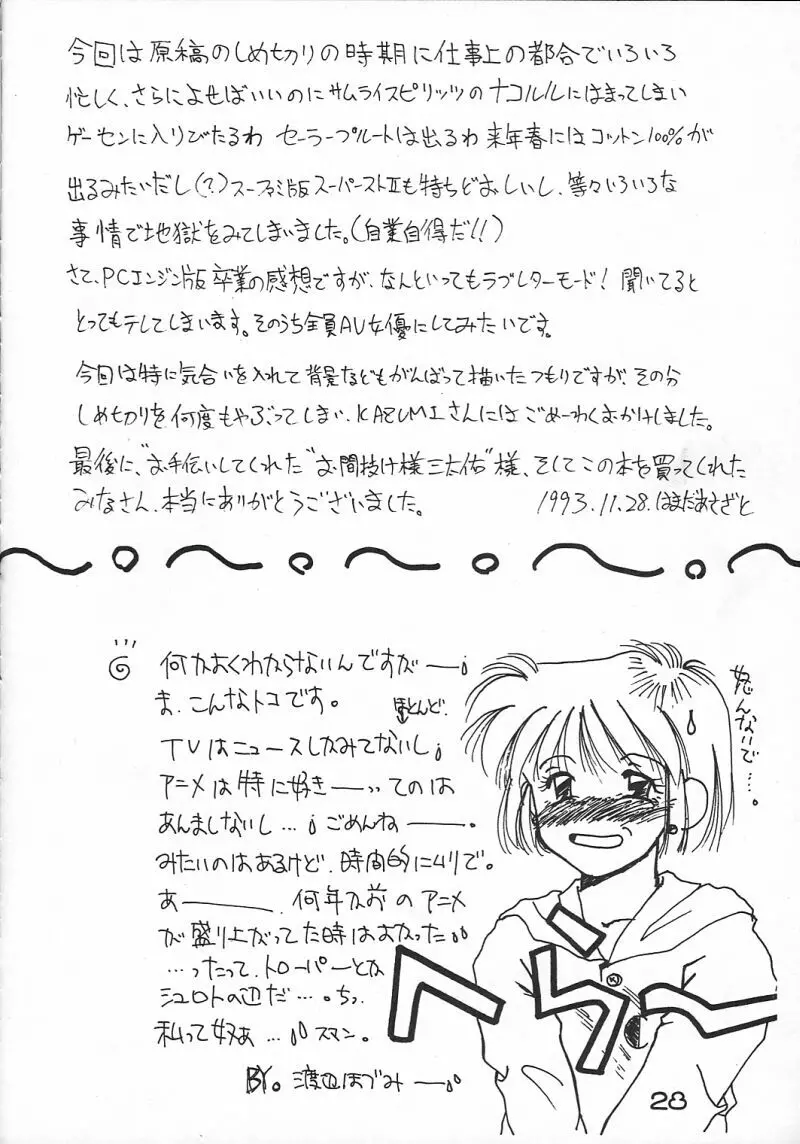 今回は原稿のしめ切りの時期に仕事上の都合でいろいろ
忙しく、さらによせばいいのにサムライスピリッツのナコルルにはまってしまい
ゲーセンに入りびたるわ セーラープルートは出るわ 来年春にはコットン100%が
出るみたいだし(?)スーファミ版スーパーストⅡも待ちどおしいし、等々いろいろな
事情で地獄をみてしまいました。(自業自得だ!!)
さて、PCエンジン版 卒業の感想ですが、なんといってもラブレターモード! 聞いてると
とってもテレてしまいます。そのうち全員AV女優にしてみたいです。
今回は特に気合いを入れて背景などもがんばって描いたつもりですが、その分
しめ切りを何度もやぶってしまい、KAZUMIさんにはごめーわくおかけしました。
最後に、“お手伝いしてくれた“お間抜け様三太佑”様、そしてこの本を買ってくれた
みなさん、本当にありがとうございました。 1993.11.28.はまだあさざと
何かよくわからないんですが――。
ま、こんなトコです。
ほとんど、
TVはニュースしかみてないし。
アニメは特に好き――ってのは
あんましないし…。ごめんね――.
みたいのはあるけど、時間的にムリで。
あ――――. 何年か前のアニメ
が盛り上がってた時はよかった。
…ったって、トローパーとか
シュロトの辺だ…。ちっ、
私って奴ぁ…。スマン。
BY。渡辺ほづみ――。
怒んないで…。
へへへ
28